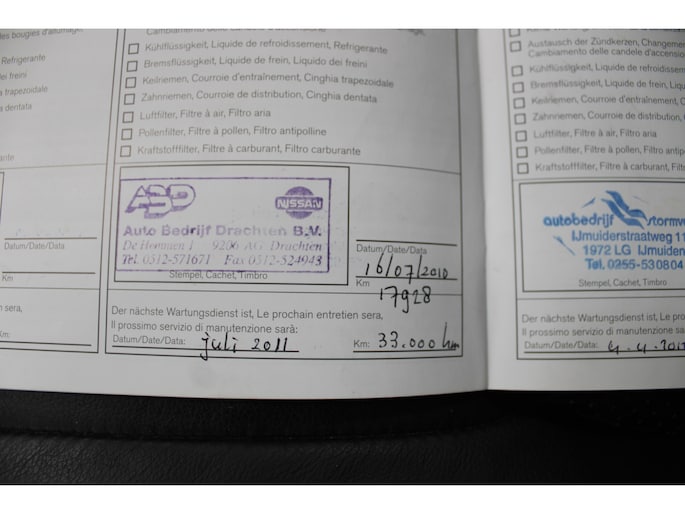 des bougies d'allumage,
Refrigerante
dei freini
a trapezoidale
a dentata
ante
Datum/Date/Data
Km
sera,
Km:
Cambiamento delle candele d'accensione
Kühlflüssigkeit, Liquide de refroidissement, Refrigerante
Bremsflüssigkeit, Liquide de frein, Liquido dei freini
Keilriemen, Courroie d'entraînement, Cinghia trapezoidale
Zahnriemen, Courroie de distribution, Cinghia dentata
Luftfilter, Filtre à air, Filtro aria
Pollenfilter, Filtre à pollen, Filtro antipolline
Kraftstofffilter, Filtre à carburant, Filtro carburante
ABD NISSAN
Auto Bedrijf Drachten B.V.
De Hemmen 1 9206 AG Drachten
Tel. 0512-571671 Fax 0512-524943
Stempel, Cachet, Timbro
Datum/Date/Data
16/07/2010
Km
17928
Der nächste Wartungsdienst ist, Le prochain entretien sera,
Il prossimo servizio di manutenzione sarà:
Datum/Date/Data: juli 2011 Km: 33.000 km
Austausch der Zündkerzen, Changeme
Cambiamento delle candele d'accension
Kühlflüssigkeit, Liquide de refroidissem
Bremsflüssigkeit, Liquide de frein, Liqui
Keilriemen, Courroie d'entraînement, C
Zahnriemen, Courroie de distribution,
Luftfilter, Filtre à air, Filtro aria
Pollenfilter, Filtre à pollen, Filtro antip
Kraftstofffilter, Filtre à carburant, Filt
autobedrijf stormv
IJmuiderstraatweg 11
1972 LG IJmuiden
Tel. 0255-530804
Stempel, Cachet, Timbro
Der nächste Wartungsdienst ist, Le proc
Il prossimo servizio di manutenzione sa
Datum/Date/Data: 4.4.201